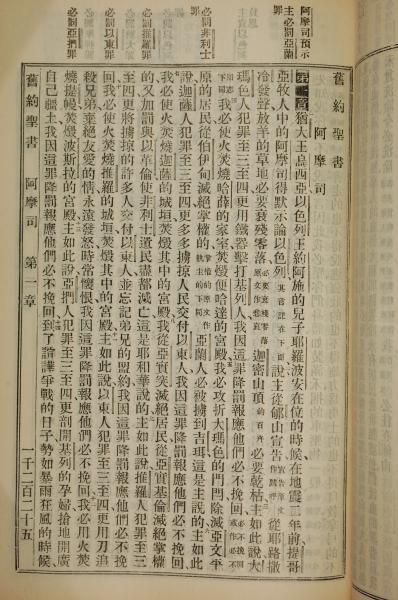 阿摩司預示
主必罰亞蘭
罪
必罰非利士
罪
必罰推羅罪
必罰以東罪
必罰亞捫罪
舊約聖書 阿摩司
第一章 猶大王烏西亞以色列王約阿施的兒子耶羅波安在位的時候在地震二年前提哥
亞牧人中的阿摩司得默示論以色列其言記在下面說主從郇山宣告宣告原文作吼叫從耶路撒
冷發聲放羊的草地必要衰殘零落必要衰殘零落原文作悲哀迦密山頂的百卉必要乾枯主如此說大
瑪色人犯罪至三至四更用鐵器擊打基列人我因這罪降罰報應他們必不挽回必不挽回或作必不
下同我必使火焚燒哈薛的家室焚燬便哈達的宮殿我必攻折大瑪色的門閂除滅亞文平
原的居民從伯伊甸滅絕掌權的掌權的原文作執圭的下同亞蘭人必被擄到吉珥這是主說的主如此
說迦薩人犯罪至三至四更多多擄掠人民交付以東人我因這罪降罰報應他們必不挽回
我必使火焚燒迦薩的城垣焚燬其中的宮殿我從亞實突滅絕居民從亞實基倫滅絕掌權
的又加罰與以革倫使非利士遺民盡都滅亡這是耶和華說的主如此說推羅人犯罪至三
至四更將擄掠的許多人交付以東人並忘記弟兄的盟約我因這罪降罰報應他們必不挽
回我必使火焚燒推羅的城垣焚燬其中的宮殿主如此說以東人犯罪至三至四更用刀追
殺兄弟棄絕友愛的情永遠發怒時常懷恨我因這罪降罰報應他們必不挽回我必用火焚
燒提幔焚燬波斯拉的宮殿主如此說亞捫人犯罪至三至四更剖開基列的孕婦搶地開廣
自己疆土我因這罪降罰報應他們必不挽回到了諠譁爭戰的日子勢如暴雨狂風的時候
舊約聖書 阿摩司 第一章 一千二百二十五